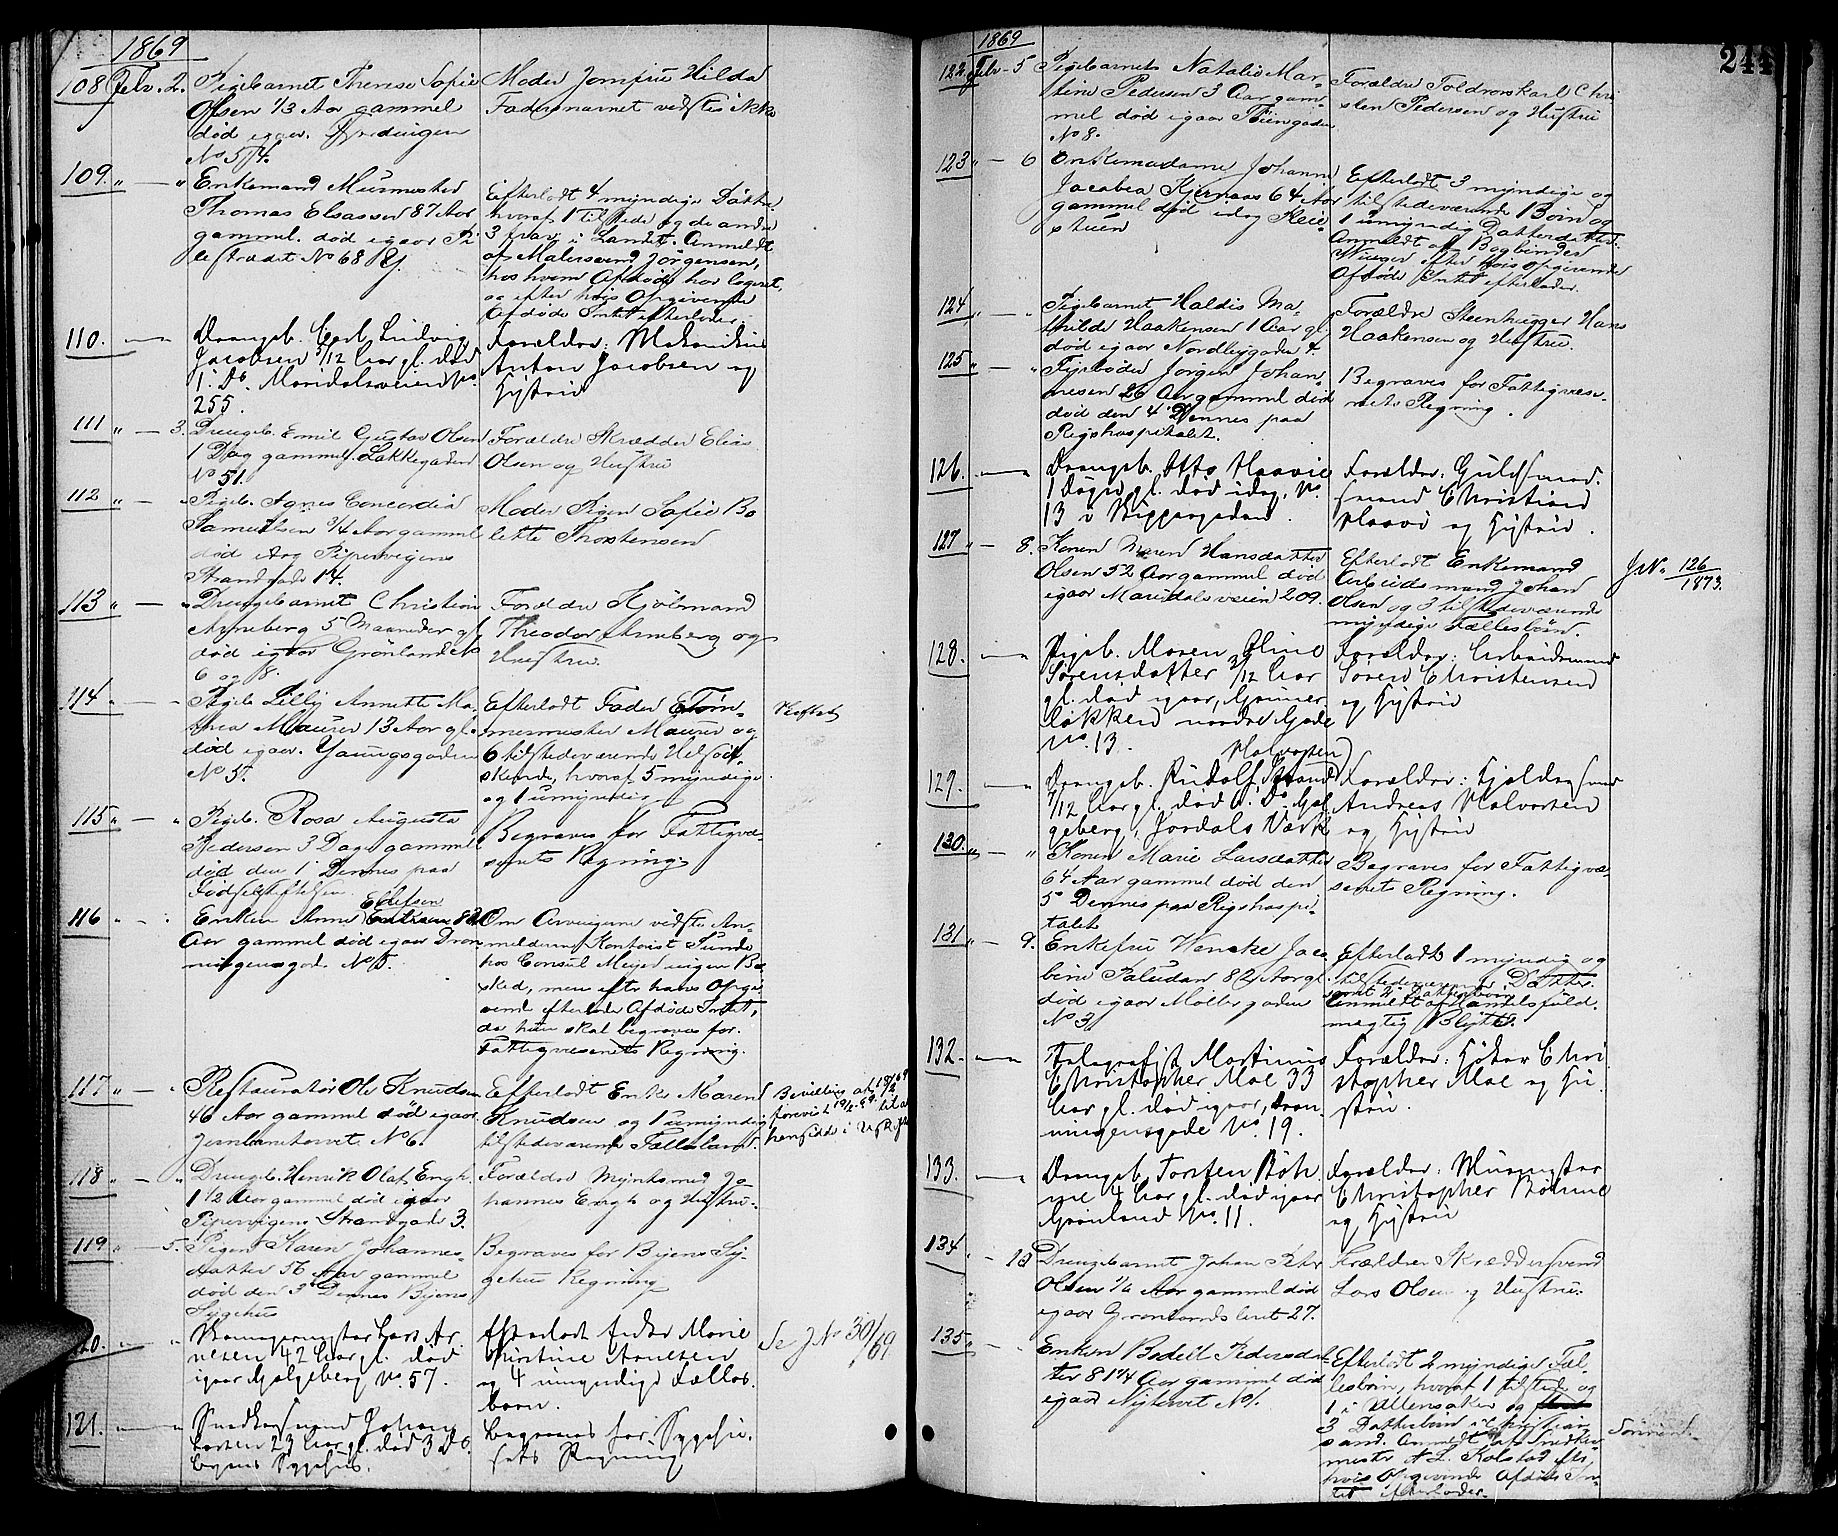 1869
108 Febr. 2. Pigebarnet Therese Sofie
Olsen 1/3 Aar gammel
død igaar. Fjerdingen
No 54.
Moder Jomfru Hilda
Fadernavnet vidstes ikke
109. " — " Enkemand Murmester
Thomas Elsasser 87 Aar
gammel død igaar Pi
lestrædet No 68
Efterlodt 4 myndige Døttre
hvoraf 1 tilstede og de andre
3 her i Landet. Anmeldt
af Malersvend Jørgensen,
hos hvem Afdøde har logeret,
og efter hvis Opgivende
Afdøde Intet efterlader.
110. — Drengeb. Carl Ludvig
Jacobsen 5/12 Aar gl. død
i. Do. Maridalsveien No.
255.
Forældre: Mekanikus
Anton Jacobsen og
Hustru
111 " — 3. Drengeb. Emil Gustav Olsen
1 Dag gammel. Lakkegaden
No 51.
Forældre Skrædder Elias
Olsen og Hustru
112 " — " Pigeb. Agnes Concordia
Samuelsen 3/4 Aar gammel
død idag Pipervigens
Strandgade 14.
Moder Pigen Sofie Bo
lette Thorstensen
113 " — " Drengebarnet Christian
Arneberg 5 Maaneder gl.
død igaar Grønland No
6 og 8.
Forældre Kjøbmand
Theodor Arneberg og
Hustru.
114 " — " Pigeb. Lilly Annette Ma
thea Maurer 13 Aar gl.
død igaar. Youngsgaden
No 5.
Efterlodt Fader Tøm-
mermester Maurer og
6 tilstedeværende Helsød-
skende, hvoraf 5 myndige
og 1 umyndig
Skiftet
115 " — " Pigeb. Rosa Augusta
Pedersen 3 Dage gammel
død den 1 Dennes paa
Fødselsstiftelsen.
Begraves for Fattigvæ-
senets Regning.
116 " — " Enken Anne Ellefsen 82
Aar gammel død igaar Dron
ningens gad. No 5.
Om Arvingerne vidste An-
melderen, Kontorist Sunde
hos Consul Meijer ingen Be-
sked, men efter hans Opgi-
vende efterlader Afdøde Intet,
da hun skal begraves for
Fattigvæsenets Regning.
117 " — " Restauratør Ole Knudsen
46 Aar gammel død igaar
Jernbanetorvet No 6.
Efterlodt Enke Maren
Knudsen og 1 umyndig
tilstedeværende Fællesbarn.
118 " — " Drengeb. Henrik Olaf Engh
1 1/2 Aar gammel død igaar
Pipervigens Strandgade 3.
Forældre Myntsmed Jo-
hannes Engh og Hustru.
119 " — 5. Pigen Karen Johannes-
datter 56 Aar gammel
død den 3 Dennes Byens
Sygehus
Begraves for Byens Sy-
gehus Regning
120. " — " Lars Ar
nesen 42 Aar gl. død
igaar Galgeberg No. 57.
Efterlodt Enke Marie
Christine Arnesen
og 4 umyndige Fælles-
børn.
Se J No 30/69
121. — Snedkersvend Johan
Larsen 23 Aar gl. død 3 Do.
Byens Sygehus.
Begraves for Sygehu-
sets Regning
244
1869
122 Febr - 5 Pigebarnet Natalie Mar-
tine Pedersen 3 Aar gam-
mel død igaar Tøiengaden
No 8.
Forældre Toldrorskarl Chri
sten Pedersen og Hustru
123 " — 6 Enkemadame Johanne
Jacobea Kjernaas 64 Aar
gammel død idag Meie
stuen
Efterlodt 3 myndige og
tilstedeværende Børn og
1 umyndig Datterdatter.
Anmeldt af Bogbinder
efter hvis Opgivende
Afdøde Intet efterlader.
124 — " Pigebarnet Haldis Ma-
thilde Haakensen 1 Aar gl.
død igaar Nordbygaden 4.
Forældre Steenhugger Hans
Haakensen og Hustru.
125 " — " Fyrbøder Jørgen Johan-
nesen 26 Aar gammel død
død den 4 Dennes paa
Rigshospitalet.
Begraves for Fattigvæse-
nets Regning.
126. — Drengeb. Otto Haavie
1 Døgn gl. død idag, No.
13 i Biggergaden.
Forældre: Guldsmed-
svend Christian
Haavi og Hustru.
127 " — 8. Konen Maren Hansdatter
Olsen 52 Aar gammel død
igaar Maridalsveien 209.
Efterlodt Enkemand
Arbeidsmand Johan
Olsen og 3 tilstedeværende
myndige Fællesbørn.
J. No. 126/1873.
128. — Pigeb. Maren Oline
Sørensdatter 3/12 Aar
gl. død igaar, Grüner-
løkken nordre Gade
No. 13.
Forældre: Arbeidsmand
Søren Christensen
og Hustru
129. — " Drengeb. Rudolf, Strand (Halvorsen)
7/12 Aar gl. død i. Do. Gal
geberg, Jordals Værk
Forældre:
Andreas Halvorsen
og Hustru
130. " — " Konen Marie Larsdatter
64 Aar gammel død den
5 Dennes paa Rigshospi-
talet
Begraves for Fattigvæ-
senets Regning.
131 " — 9. Enkefru Wencke Jaco
bine Paludan 82 Aar gl.
død igaar Møllergaden
No 3
Efterlodt 1 myndig og
tilstedeværende Datter
samt 2 Datterbørn
Anmeldt af Handelsfuld-
mægtig Blytt.
132. — Telegrafist Martinus
Christopher Moe 33
Aar gl. død igaar, Dron-
ningensgade No. 19.
Forældre: Høker Chri
stopher Moe og Hu-
stru.
133. — Drengeb. Torsten Bøh
me 4 Aar gl. død igaar
Grønland No. 11.
Forældre: Murmester
Christopher Bøhme
og Hustru
134 — 10 Drengebarnet Johan Peter
Olsen 1/6 Aar gammel død
igaar Grønlandsleret 27.
Forældre Skræddersvend
Lars Olsen og Hustru.
135 " — " Enken Bodell Pedersdat-
ter 81 1/4 Aar gammel død
igaar Nytorvet No 1.
Efterlodt 2 myndige Fæl-
lesbørn, hvoraf 1 tilstede og
1 i Ullensaker og
3 Datterbørn i Christian
sand. Anmeldt af Snedker-
mester A. L. Kolstad efter
hvis Opgivende Afdøde In-
tet efterlader.